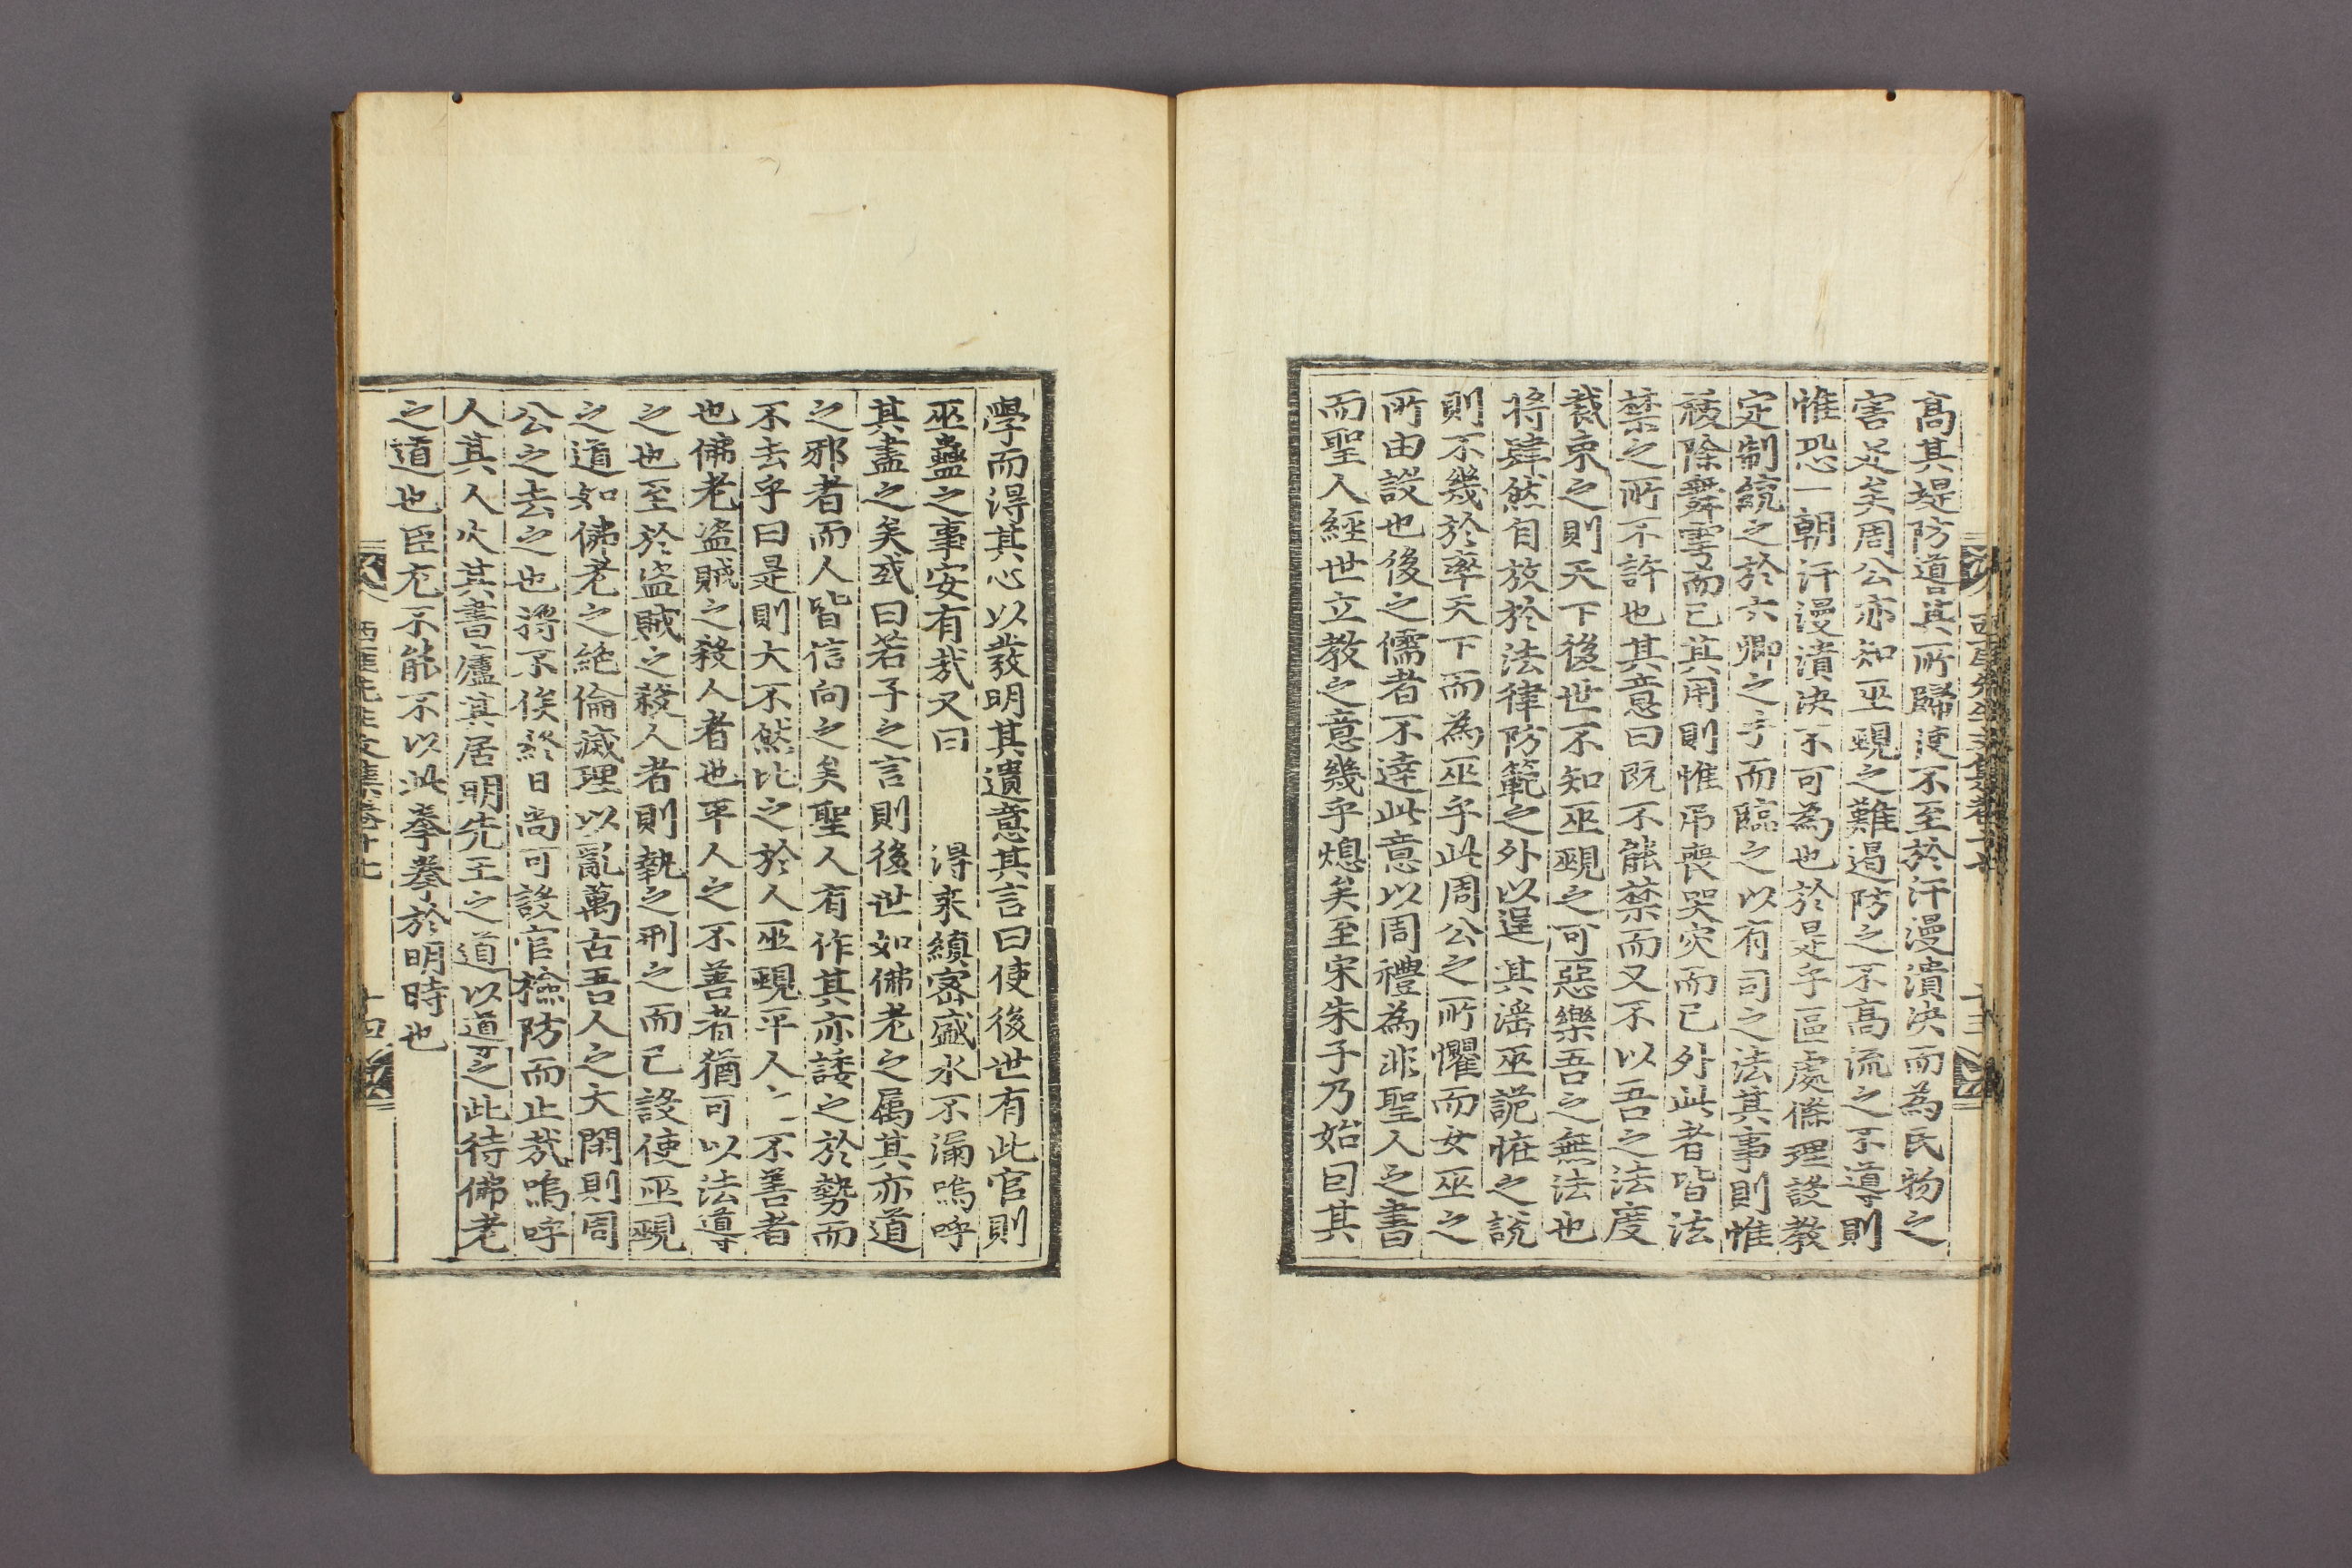 高其堤防道其所歸使不至於汗漫潰決而為民物之
害足矣周公亦知巫覡之難遏防之不高流之不導則
惟恐一朝汗漫潰決不可為也於是乎區處條理設教
定制統之於六卿之手而臨之以有司之法其事則惟
祓除舞雩而已其用則惟吊喪哭灾而已外此者皆法
禁之所不許也其意曰既不能禁而又不以吾之法度
裁束之則天下後世不知巫覡之可惡樂吾之無法也
將肆然自放於法律防範之外以逞其滛巫詭恠之說
則不幾於率天下而為巫乎此周公之所懼而女巫之
所由設也後之儒者不達此意以周禮為非聖人之書
而聖人經世立教之意幾乎熄矣至宋朱子乃始因其
西厓先生文集卷十七
十三
學而得其心以發明其遺意其言曰使後世有此官則
巫蠱之事安有哉又曰 得來縝密盛水不漏嗚呼
其盡之矣或曰若子之言則後世如佛老之屬其亦道
之邪者而人皆信向之矣聖人有作其亦諉之於勢而
不去乎曰是則大不然比之於人巫覡平人之不善者
也佛老盗賊之殺人者也平人之不善者猶可以法導
之也至於盗賊之殺人者則執之刑之而已設使巫覡
之道如佛老之絶倫滅理以亂萬古吾人之大閑則周
公之去之也將不俟終日尚可設官撿防而止哉嗚呼
人其人火其書廬其居明先王之道以道之此待佛老
之道也臣尤不能不以此拳拳於明時也
西厓先生文集卷十七
十四